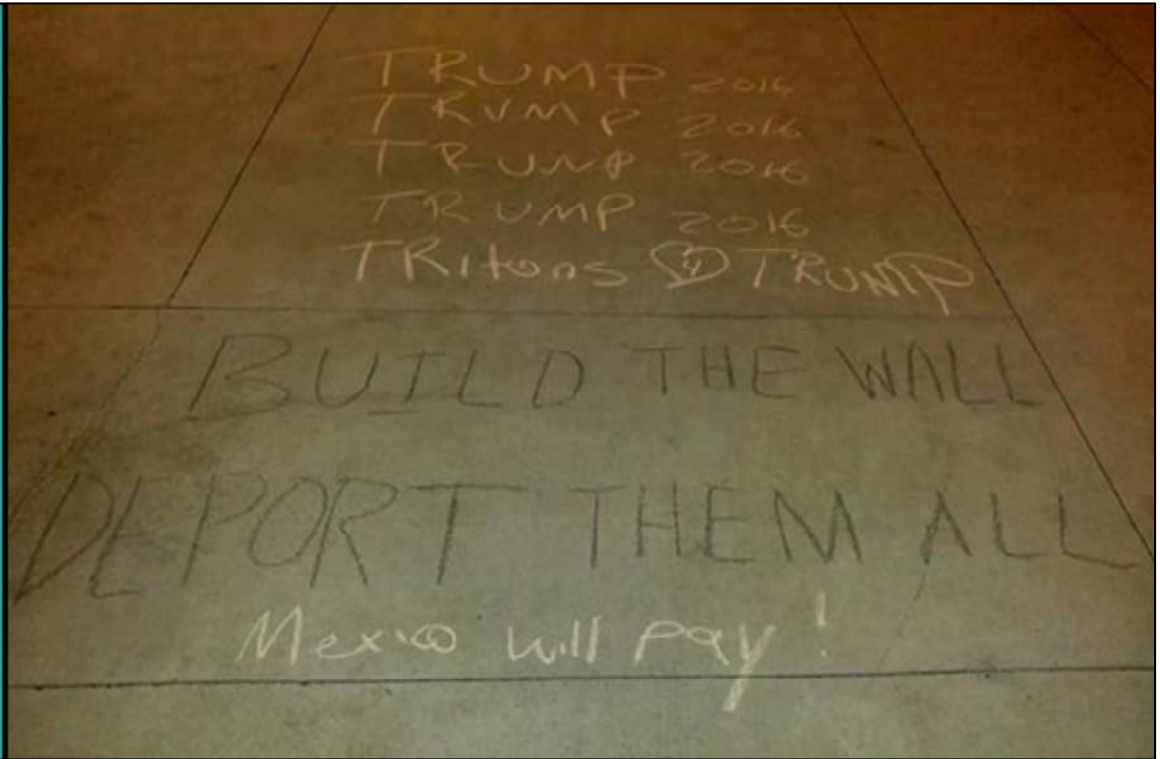 TRUMP 2016
TRUMP 2016
TRUMP 2016
TRUMP 2016
TRitons TRUMP
BUILD THE WALL
DEPORT THEM ALL
Mexico will Pay!